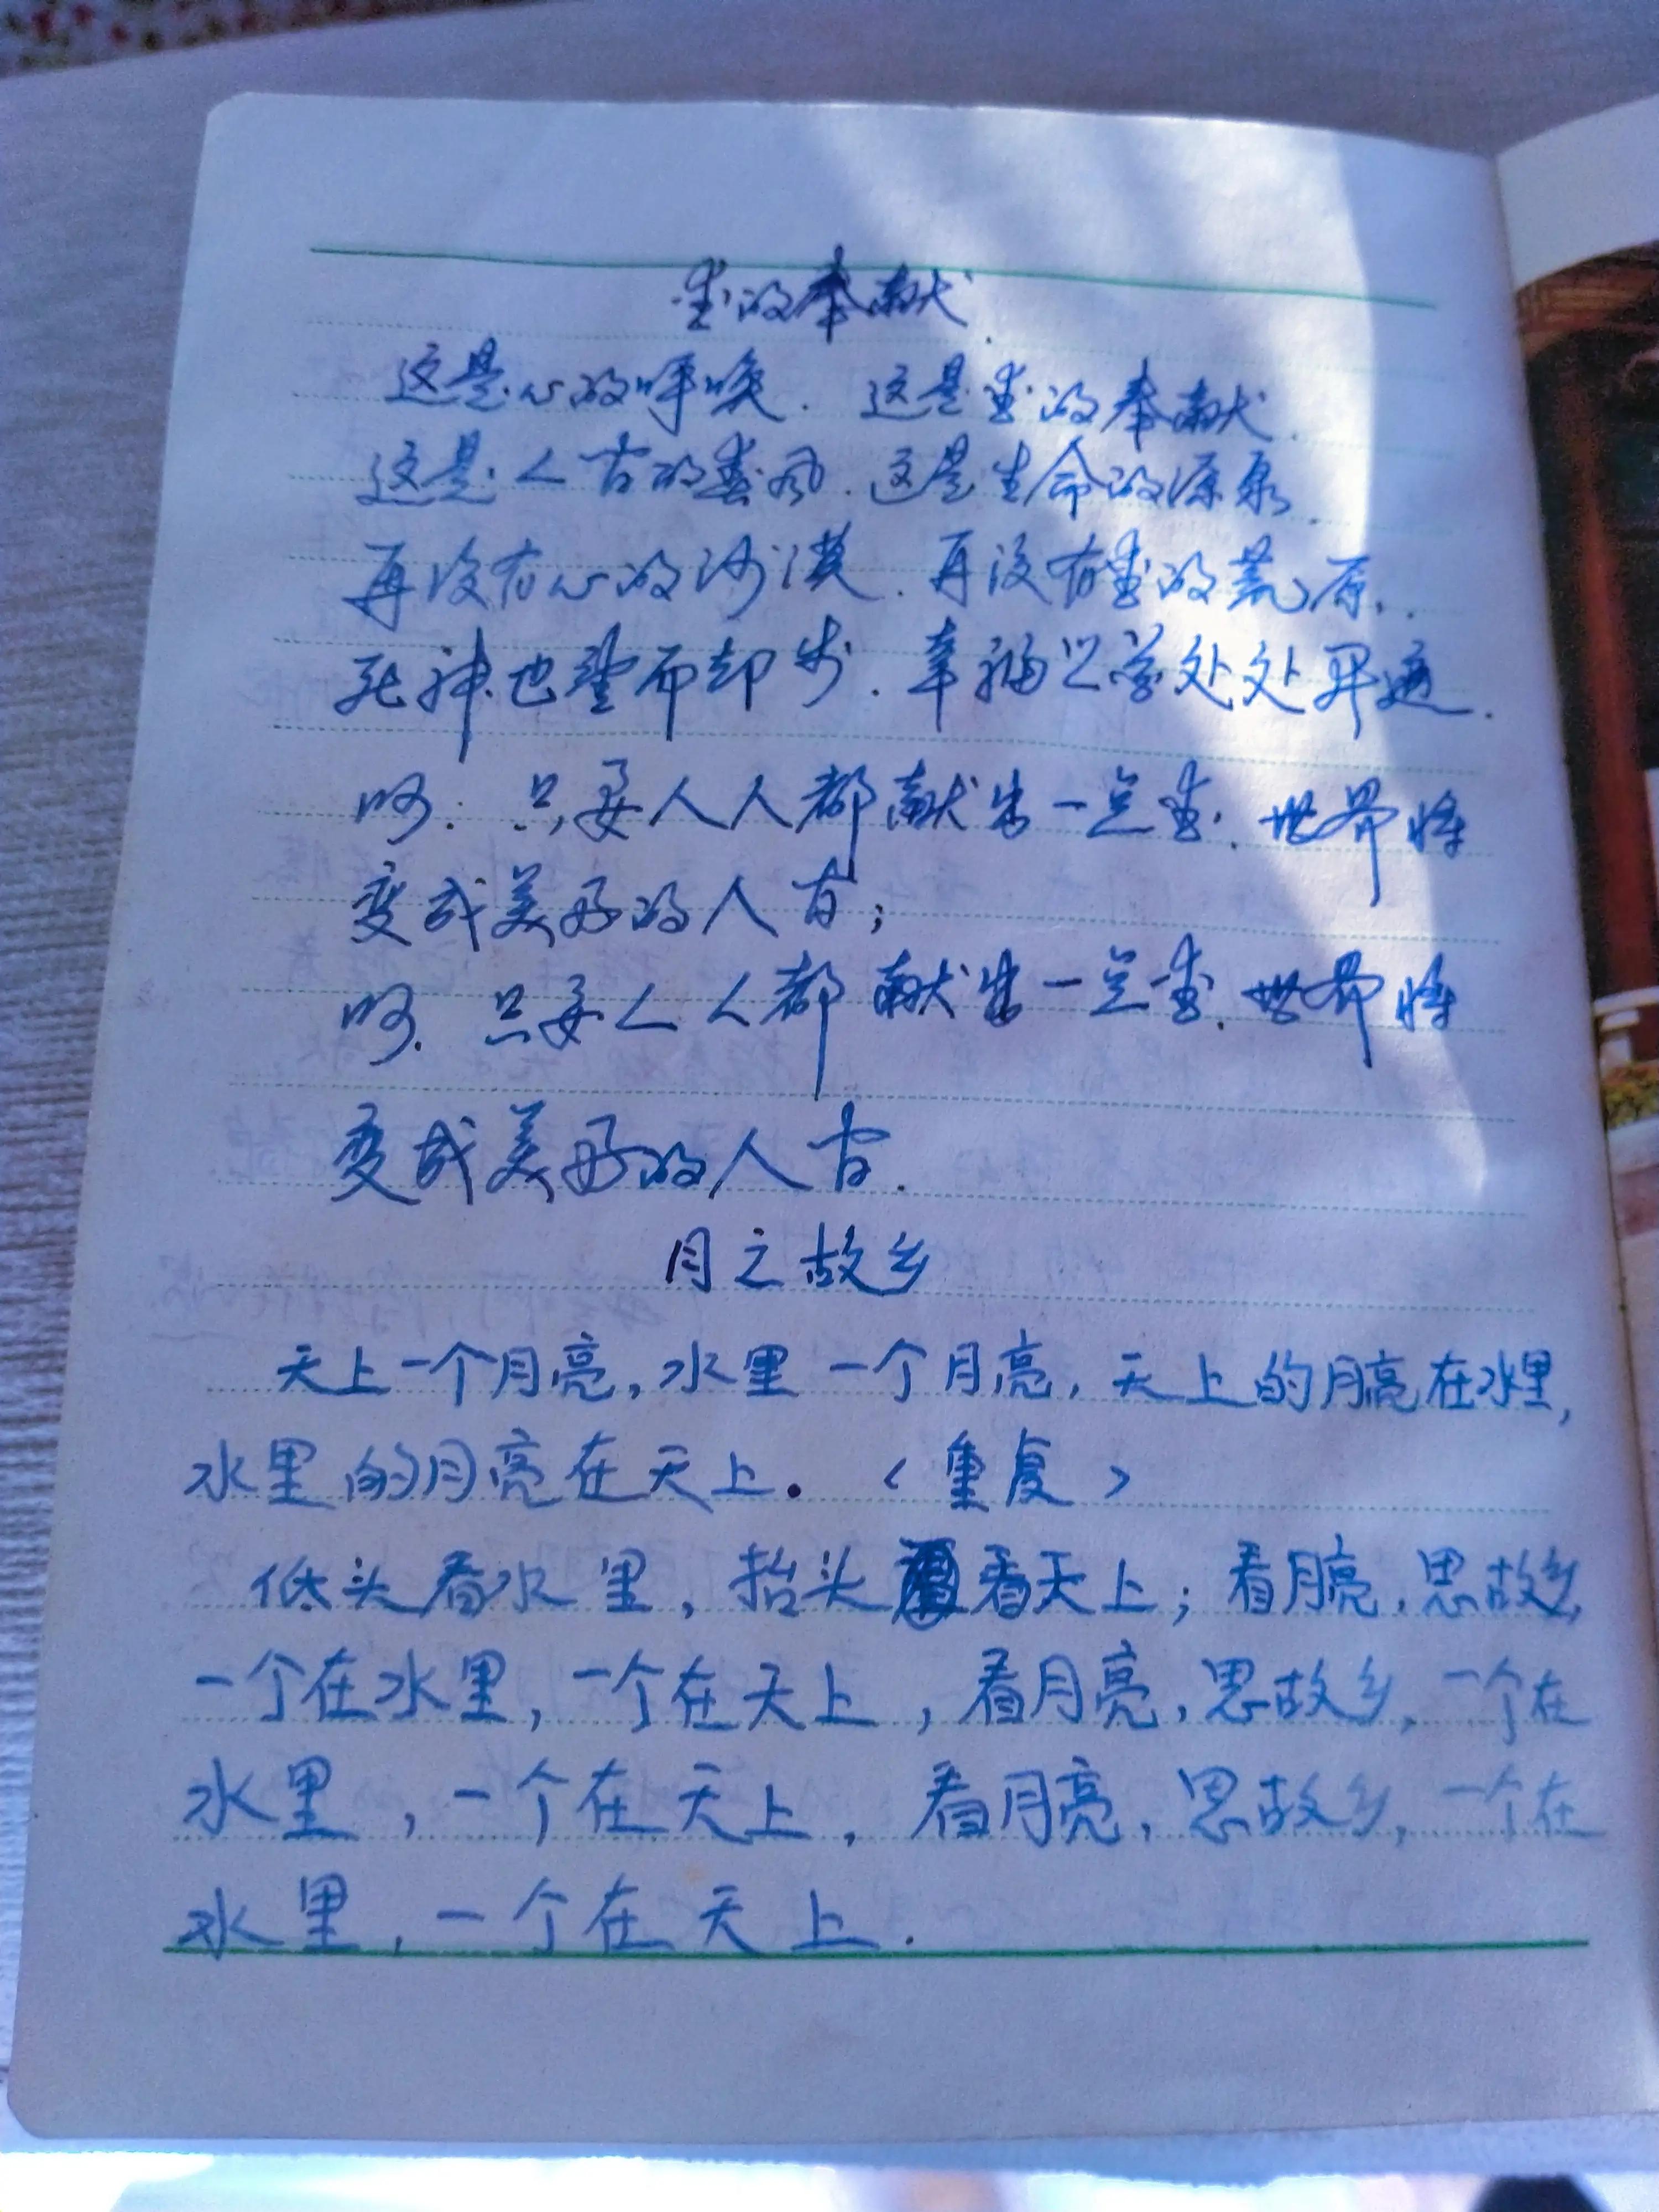 爱的奉献
这是心的呼唤.这是爱的奉献.
这是人间的春风.这是生命的源泉.
再没有心的沙漠.再没有爱的荒原.
死神也望而却步.幸福之花处处开遍.
啊.只要人人都献出一点爱.世界将
变成美好的人间;
啊.只要人人都献出一点爱.世界将
变成美好的人间.
月之故乡
天上一个月亮,水里一个月亮,天上的月亮在水里,
水里的月亮在天上.〈重复〉
低头看水里,抬头看天上;看月亮,思故乡,
一个在水里,一个在天上,看月亮,思故乡,一个在
水里,一个在天上,看月亮,思故乡,一个在
水里,一个在天上.